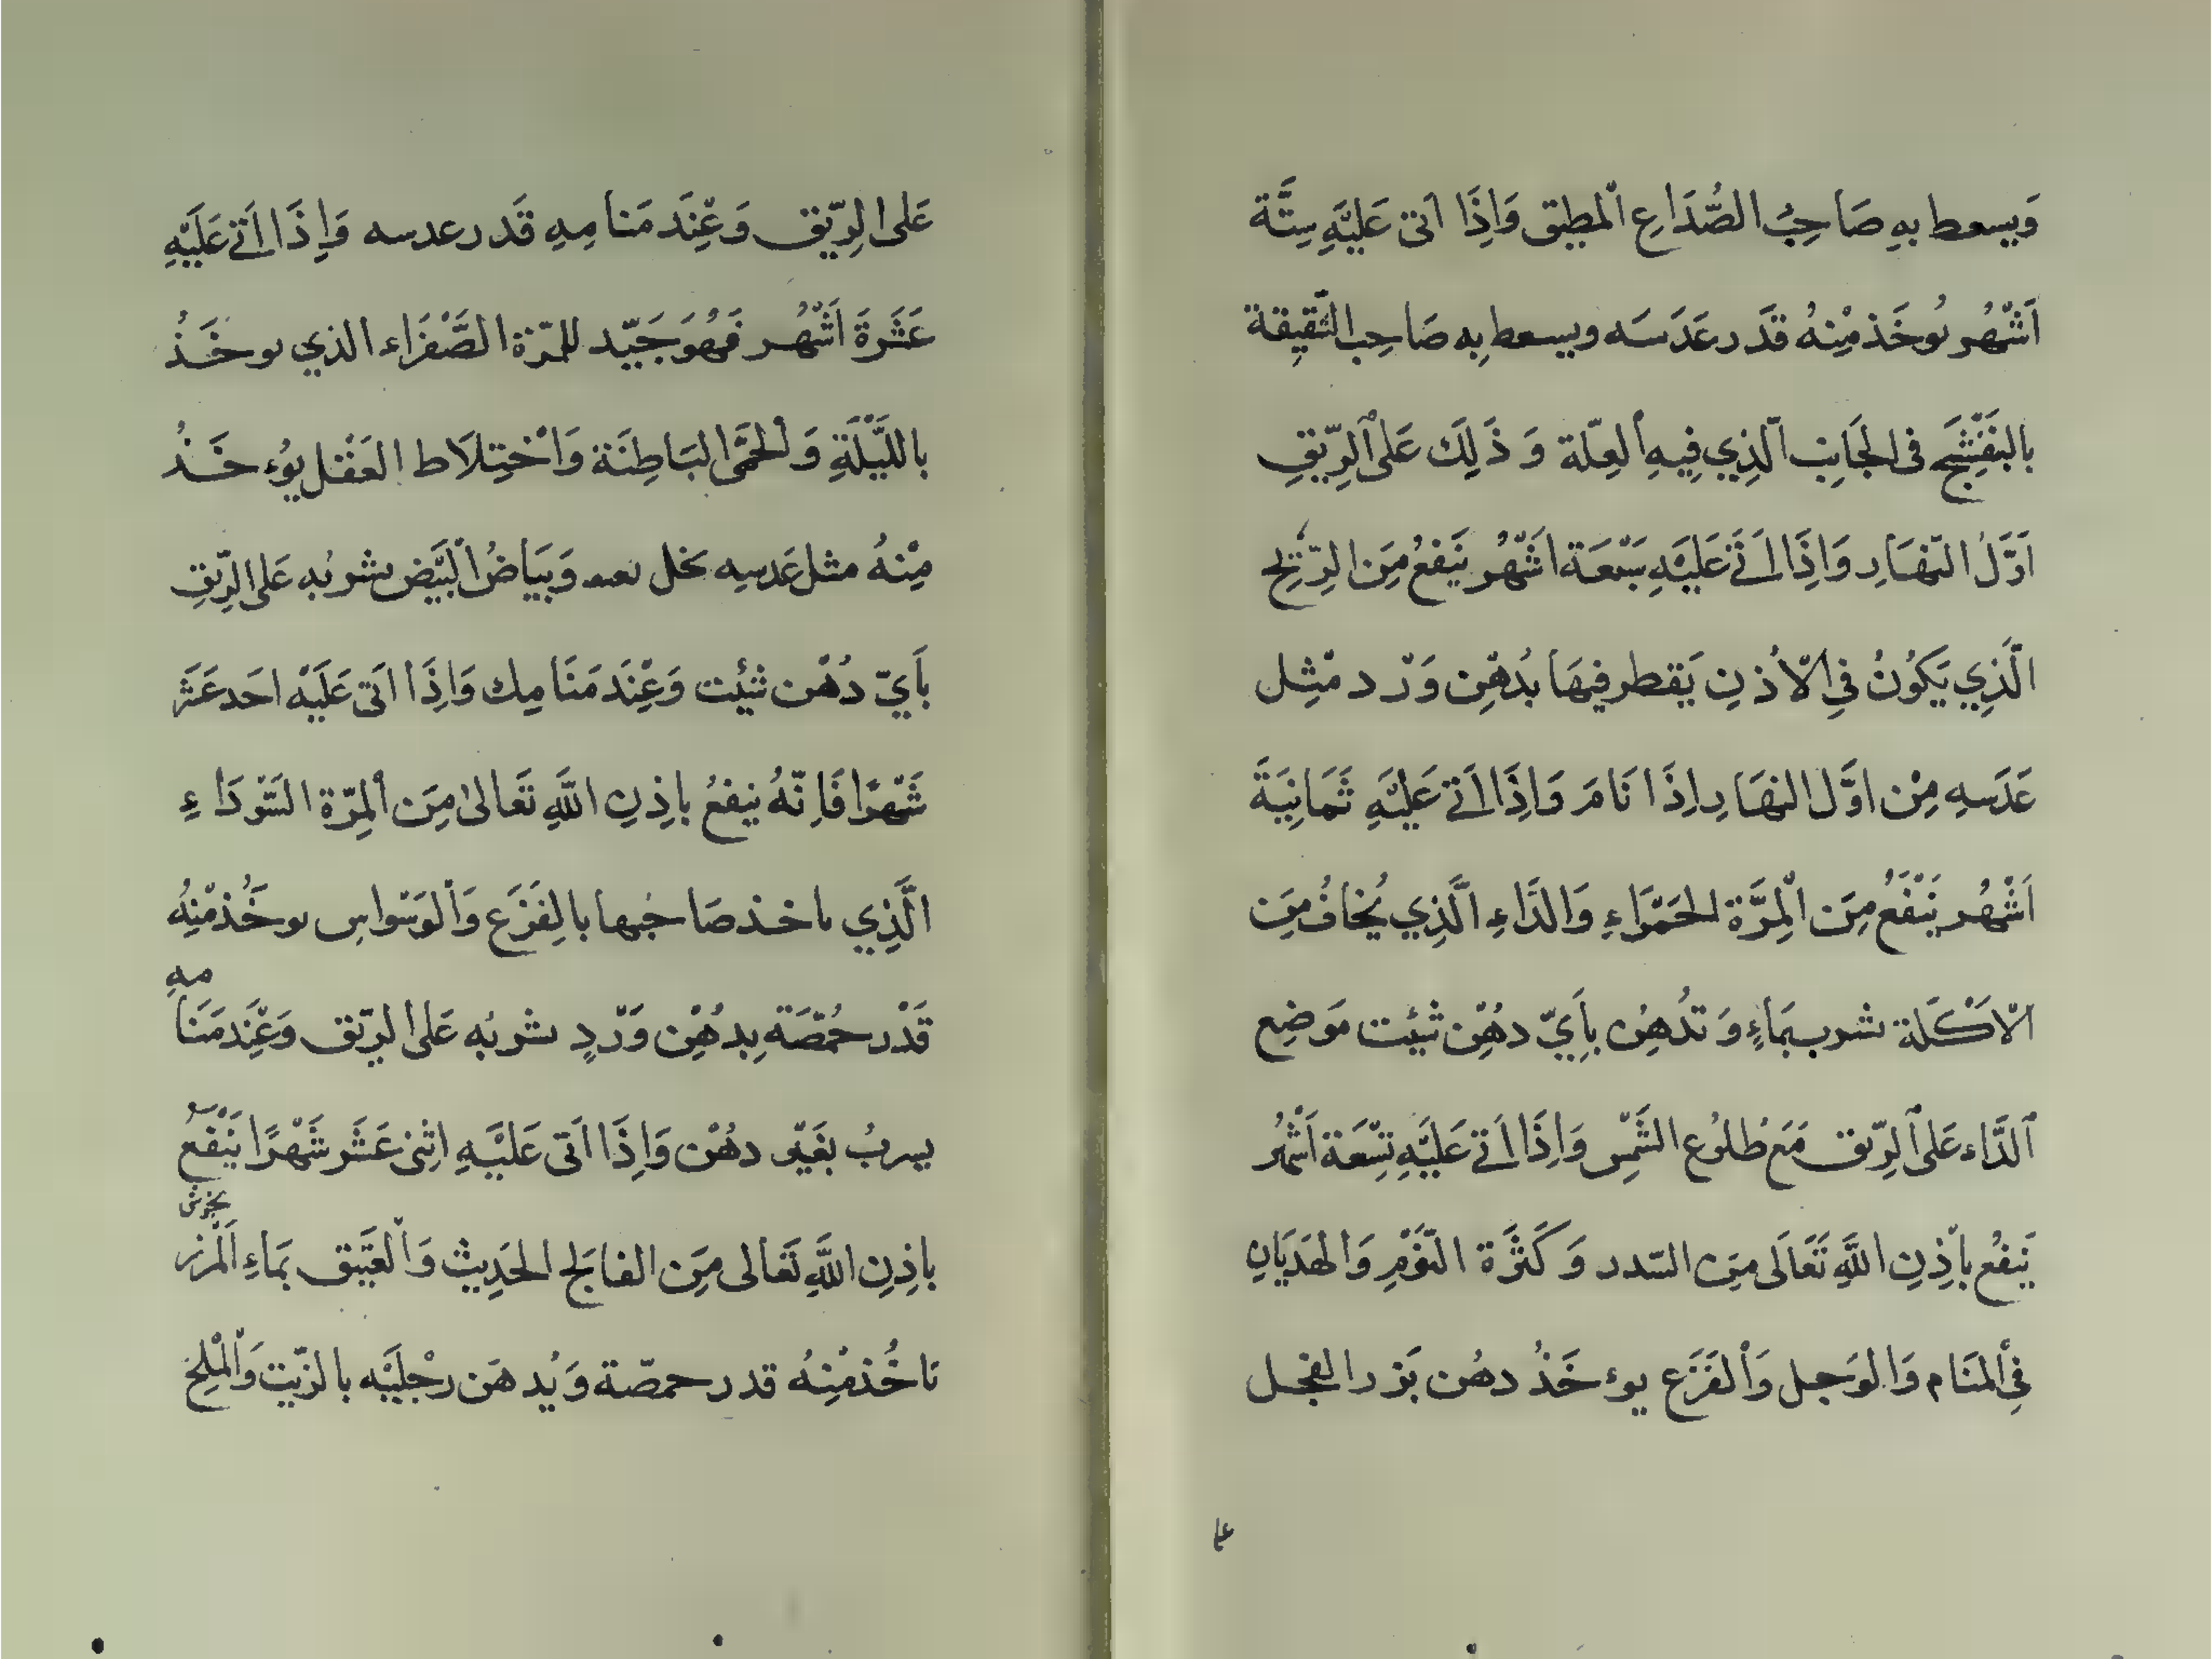 وَيسعط بهِ صَاحِبُ الصُّدَاعِ اْلمطبق وَاِذَا اتى عَليَّهِ سِتَّة
اَشّهُر يُوخَذ مِّنهُ قدَر عَدَسَه ويسعط بِه صَاحِب الشَّقِيقة
بالبَنَفِسْجَ فى الجَانِب اَلّذِي فِيهِ اْلعِلّة وَ ذَلِكَ عَلى اْلرِّيّقِ
اَوَّلُ النّهَارِ وَاِذَا اَتَى عَليَّهِ سَبّعَة اشّهُر يَنفعُ مِنَ الرِّيَّحِ
الَّذِي يَكُونُ فِى الْاُذنِ يَقطر فيهَا بُدهّن وَرّد مّثِل
عَدَسهِ مِنْ اوَّل النهَارِ اِذَا نَامَ وَاِذَا اَتى عَليَّهِ ثَمَانِيَةَ
اَشْهُر يَنْفَعُ مِنَ الْمِرَّة الحَمّرَاءِ وَالدَّاءِ الَّذِي يُخَافُ مِنَ
الْاَكَلَة شرب بمَاءٍ وَ تُدهِن بِاَيّ دهُنْ شِئت مَوضِع
اَلدَّاء عَلى اْلرِّيق مَعَ طُلُوعِ الشَّمّسِ وَاِذَا اَتى عَليَّهِ تِسْعَة اَشْهُر
يَنفعُ بِاْذِنِ اللَّهِ تَعَالَى مِنَ السّدر وَكَثَرَة النّوّمِ وَالهدَيَانِ
فِى اْلمنَام وَالوَجل وَاْلفَزَع يوءخَذُ دهُن بَزر الفجل
عَلى الرِيّق وَعْنِدَ مَنامِهِ قَدر عدسه وَاِذَا اَتى عَليَّهِ
عَشَرَة اَشّهُر فَهُوَ جَيّد للمرّة الصَّفْرَاء الذي يوخَذُ
باللَّيْلَةِ وَالحمَّى البَاطِنَة وَاْختِلَاط العَقْل يوُءخَذُ
مِّنْهُ مثل عَدسِه بخل وَبَيَاضُ اْلبَيّض يشربُه عَلى الرِيّقِ
بأَيّ دُهْن شِئت وَعْنِدَ مَنَامِك وَاِذَا اَتى عَلَيّه احَد عَشَر
شَهّرًا فَاِنّهُ ينفعُ باِذِنِ اللَّهِ تَعَالىٰ مِنَ اْلمِرّة السَّوّدَاءِ
الَّذِي ياخذ صَاحُبها بالِفَزَع وَاْلوَسّواسِ يوخَُذ مّنِهُ
قَدْر حُمّصَة بِدهُنْ وَرّدٍ يشربُه عَلى الريّق وَعْنِدَ مَنَامهِ
يسربُ بغَيّر دهُنْ وَاِذَا اَتى عَليَّهِ اثِنى عَشَر شَهْرًا يَنْفَعُ
باِذِنِ اللَّهِ تَعَالى مِنَ الفَالِج الحَدِيثْ وَاْلعَتَيق بمَاءِ اَلْمرَزنجوش
يَاخُذ مّنِهُ قدر حمصّة وَيُدهَن رجْلَيَّه بالزّيت وَاْلمْلحِ